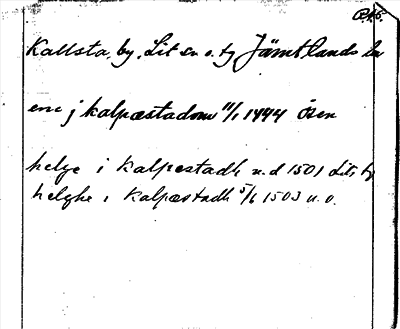 Kallsta, by, Lit sn o. tg Jämtlands län
ene j kalpæstadom 11/1 1444 Ösen
helge i kalpestadh u.d 1501 Lits tg
helghe i kalpæstadh 5/6 1503 u.o.